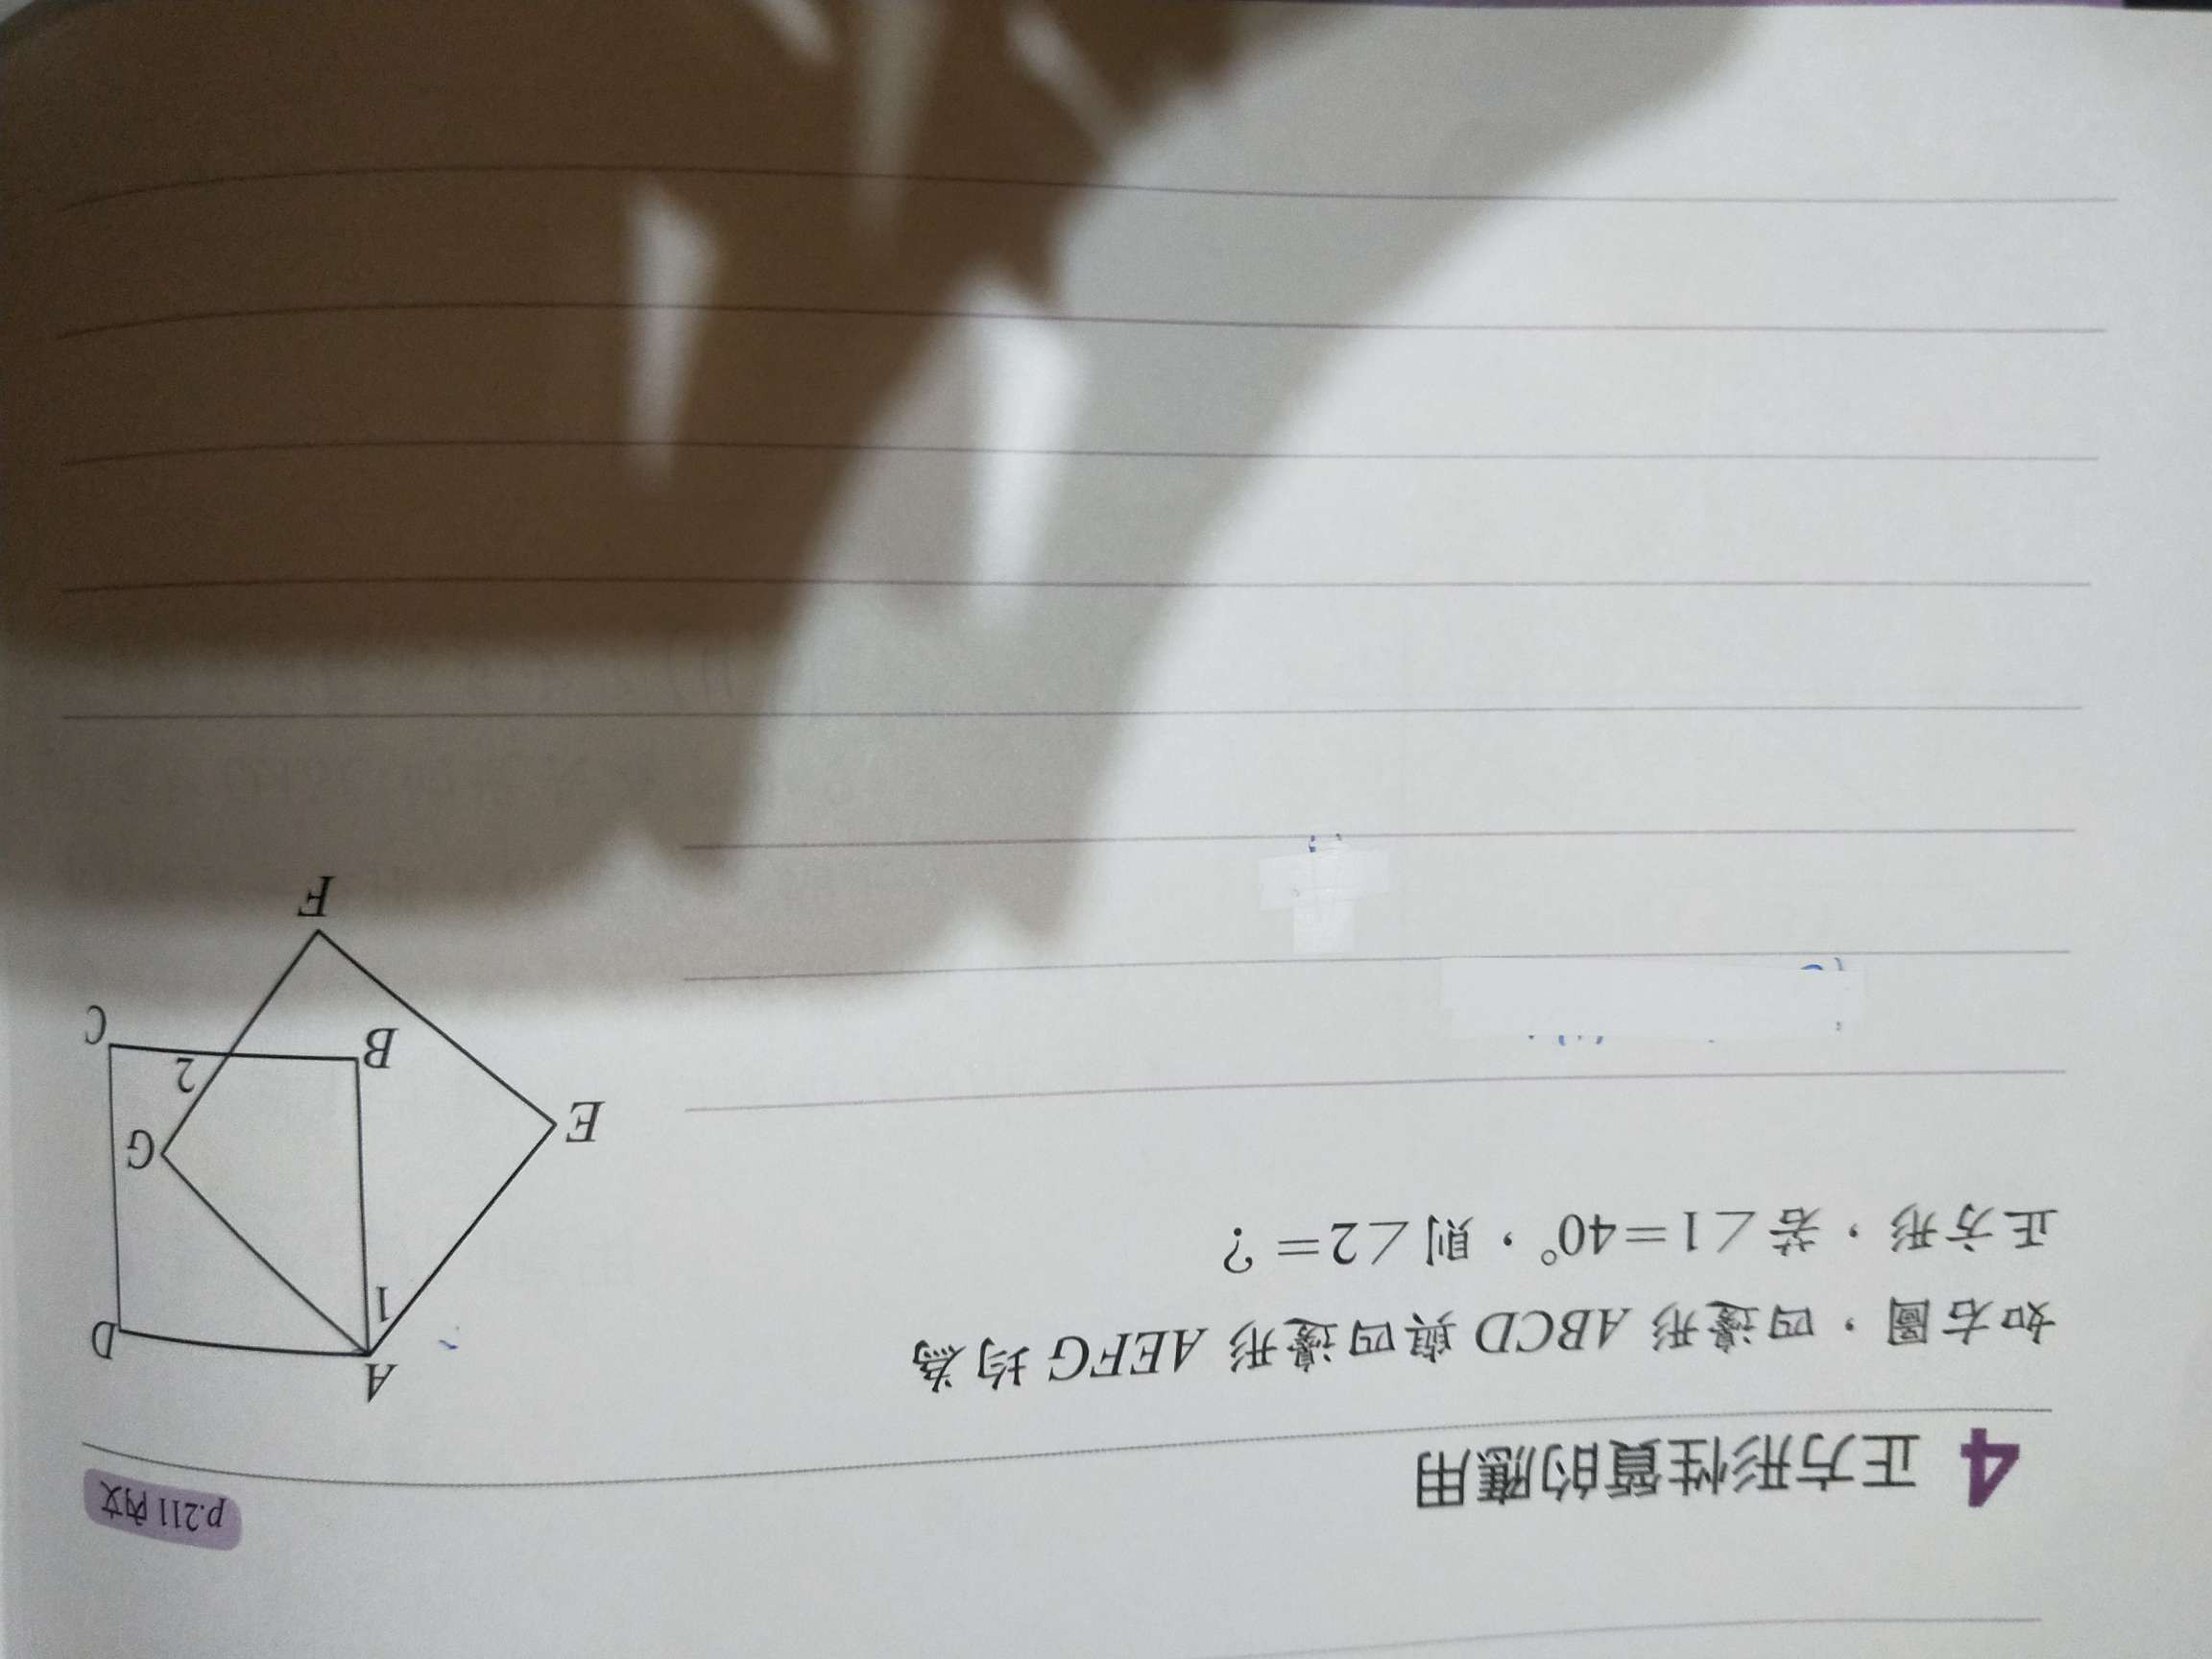 4 正方形性質的應用
p.211 內文
如右圖，四邊形 ABCD 與四邊形 AEFG 均為
正方形，若∠1=40°，則∠2=？
A
D
1
E
G
2
B
C
F